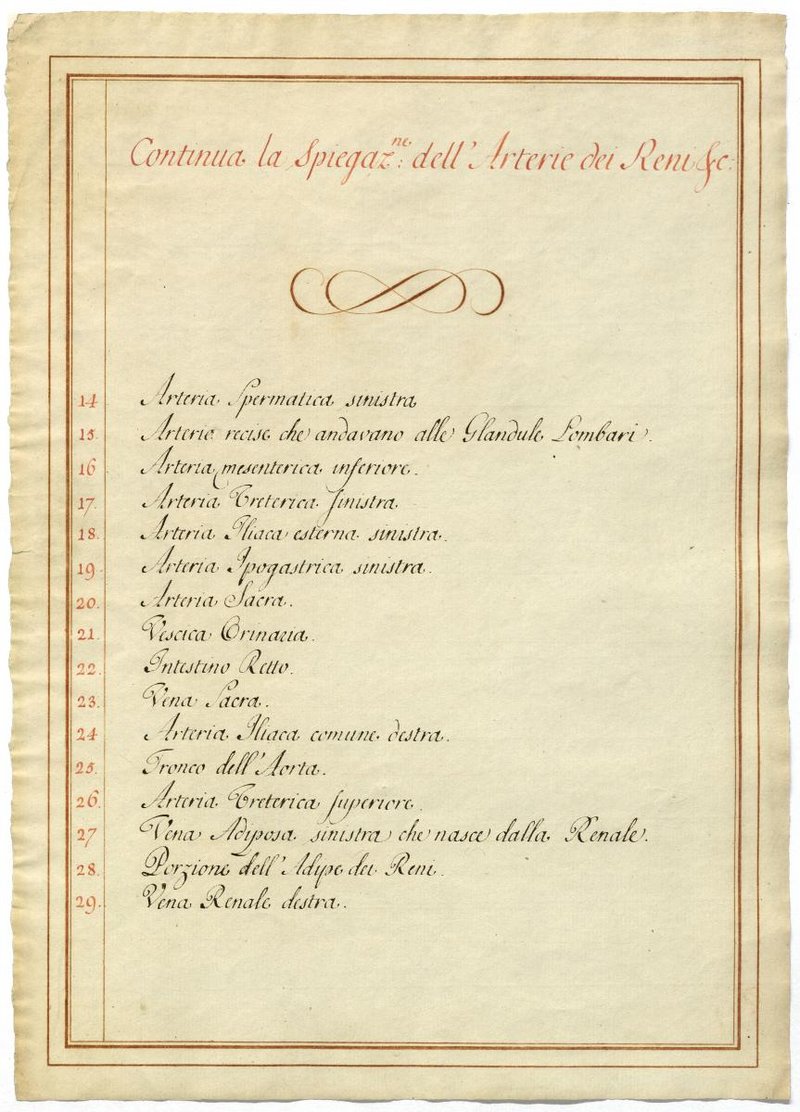 Continua la Spiegaz.ne dell'Arterie dei Reni &c.
14 Arteria Spermatica sinistra
15. Arterie recise che andavano alle Glandule Lombari.
16 Arteria mesenterica inferiore.
17. Arteria Ureterica sinistra
18. Arteria Iliaca esterna sinistra.
19 Arteria Ipogastrica sinistra.
20. Arteria Sacra.
21. Vescica Orinaria.
22. Intestino Retto.
23. Vena Sacra.
24 Arteria Iliaca comune destra.
25. Tronco dell'Aorta.
26. Arteria Ureterica superiore.
27 Vena Adiposa sinistra che nasce dalla Renale.
28. Porzione dell'Adipe dei Reni.
29. Vena Renale destra.